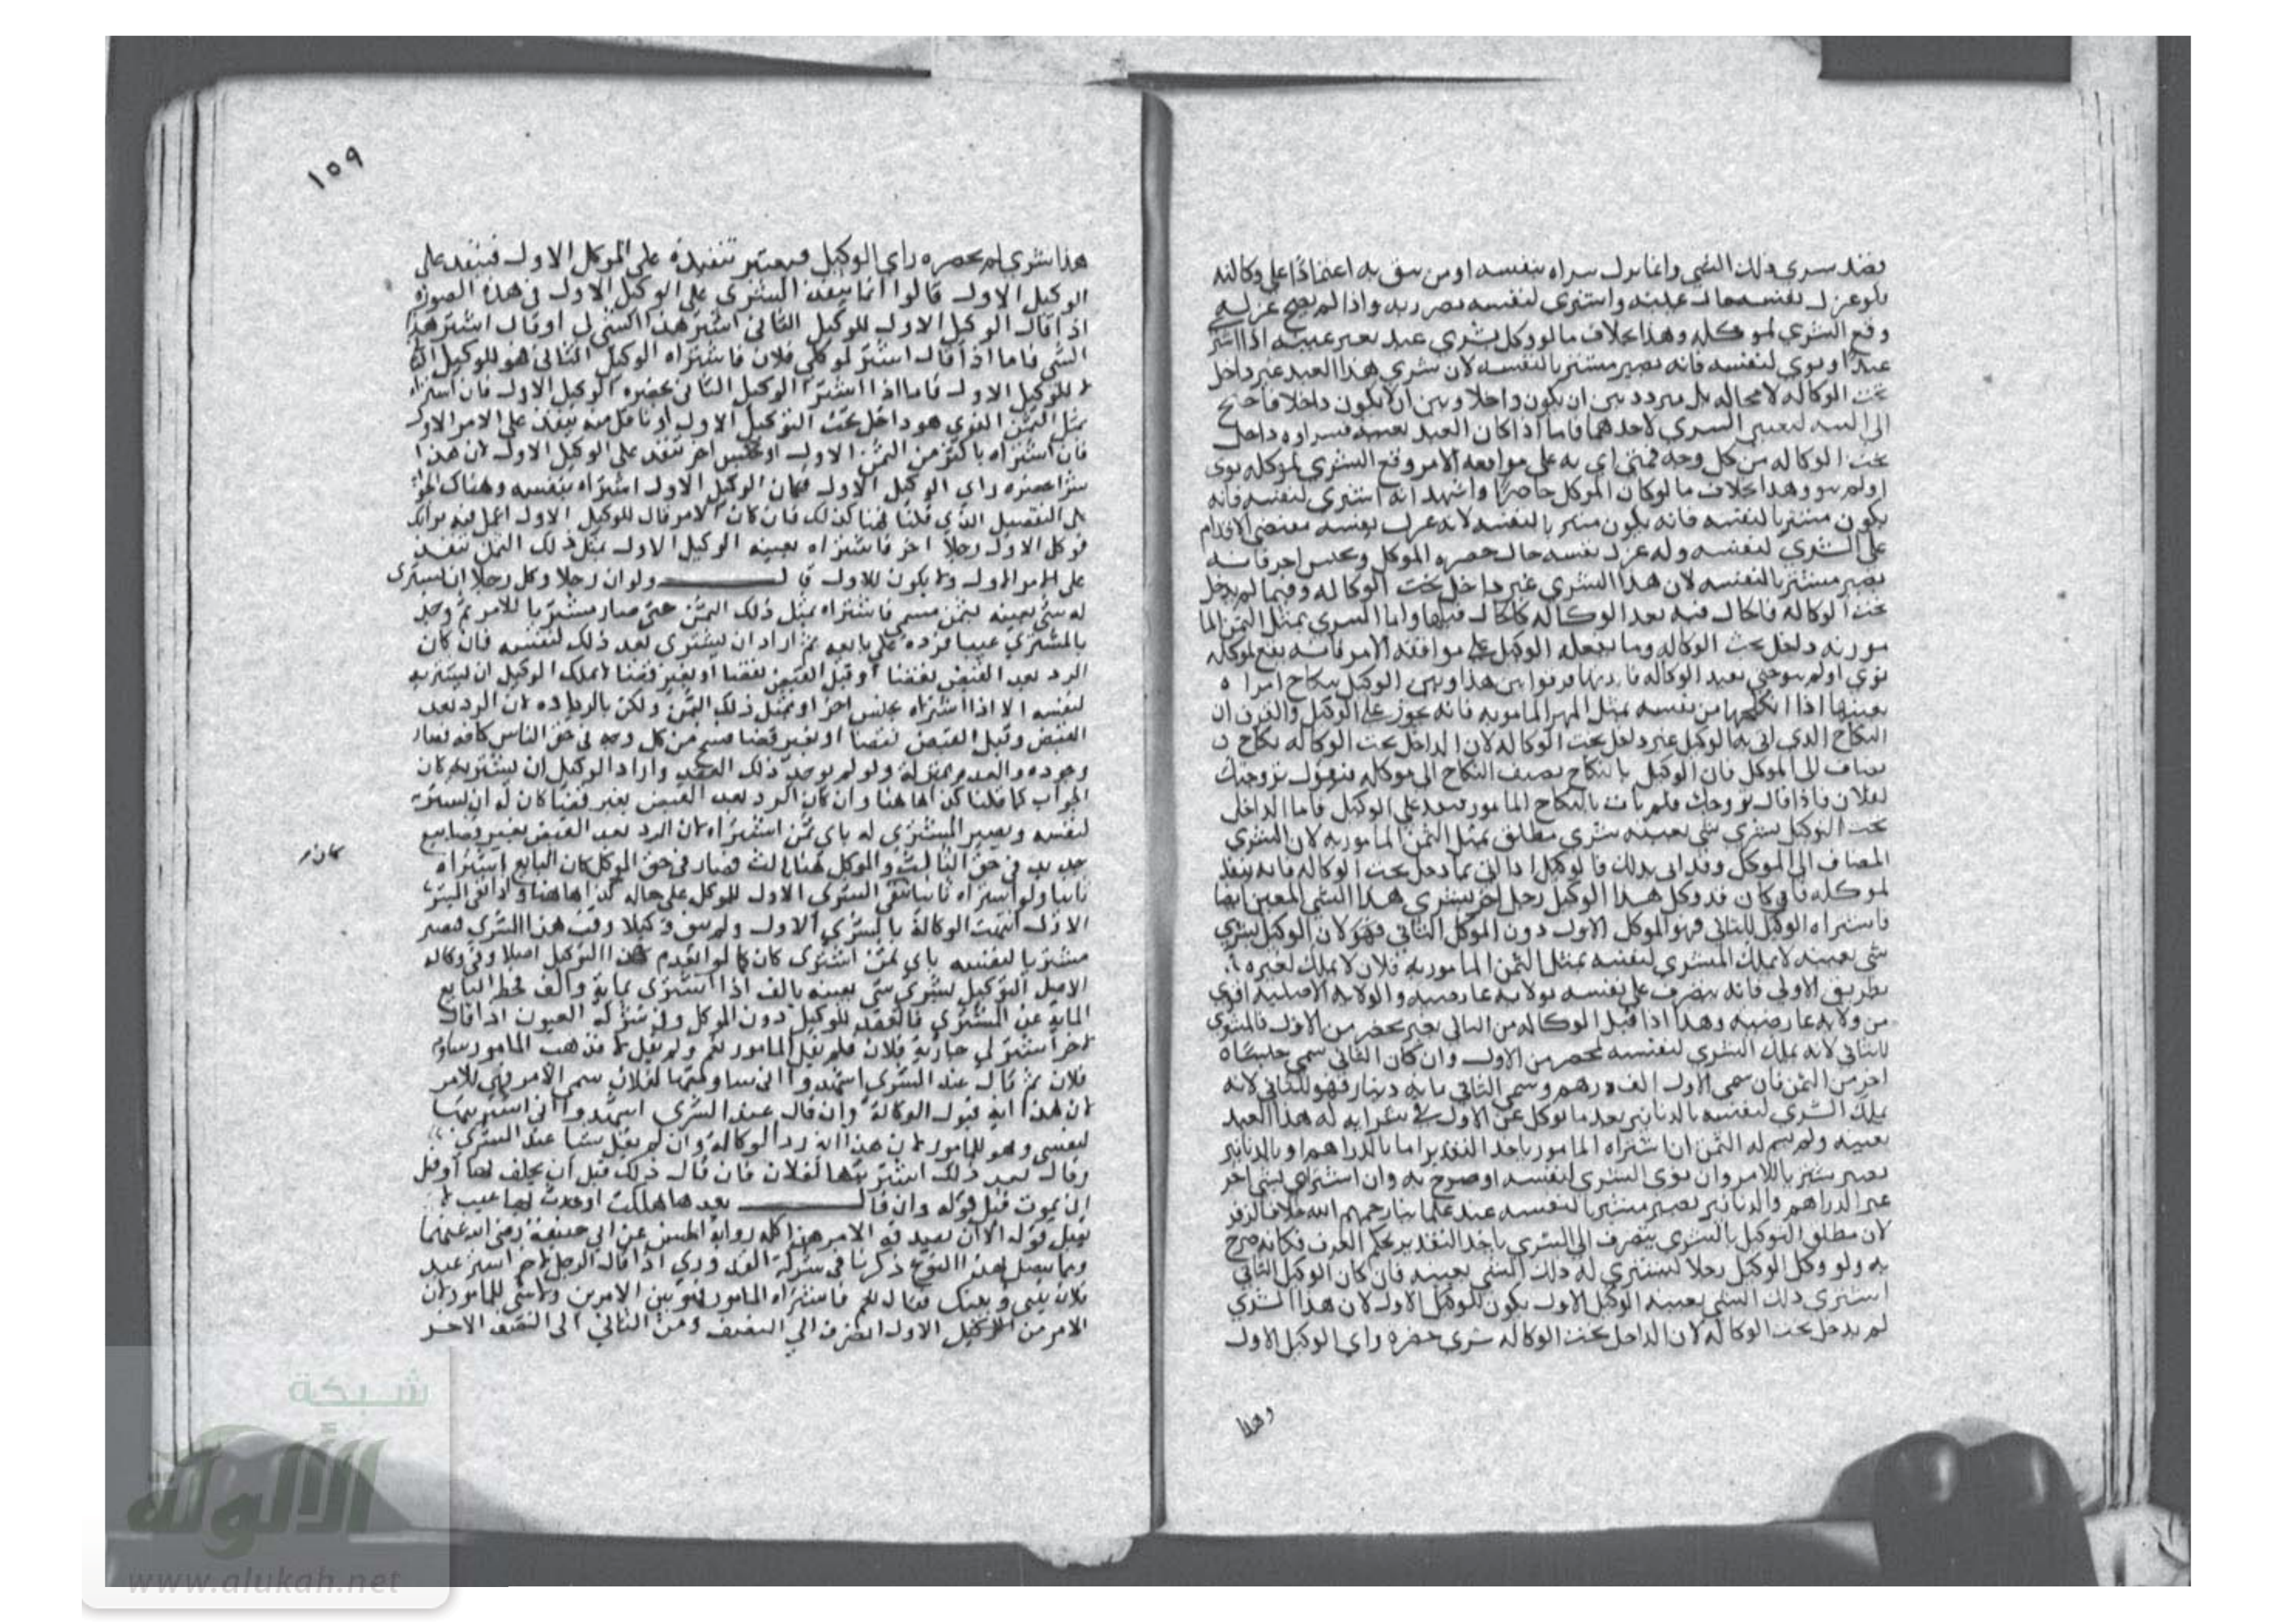 بقصد شرى ذلك الشي وانما ترك شراه بنفسه او من يثق به اعتمادا على وكالته
فلو عزل نفسه حال غيبته واشترى لنفسه تضرر به واذا لم يصح عزله
وقع الشرى لموكله وهذا بخلاف ما لو وكل بشرى عبد بغير عينه اذا اشترى
عبدا ونوى لنفسه فانه يصير مشتريا لنفسه لان شرى هذا العبد غير داخل
تحت الوكالة لا محاله بل متردد بين ان يكون داخلا وبين ان لا يكون داخلا فاحتيج
الى النيه لتعيين الشرى لاحدهما فاما اذا كان العبد بعينه فشراوه داخل
تحت الوكاله من كل وجه فمتى اتى به على موافقه الامر وقع الشرى لموكله نوى
او لم ينو وهذا بخلاف ما لو كان الموكل حاضرا واشهد انه اشترى لنفسه فانه
يكون مشتريا لنفسه فانه يكون مشتريا لنفسه لانه عزل نفسه مقتضى الاقدام
على الشرى لنفسه وله عزل نفسه حال حضره الموكل وبجنس اخر فانه
يصير مشتريا لنفسه لان هذا الشرى غير داخل تحت الوكاله وفيما لم يدخل
تحت الوكالة فالحال فيه بعد الوكالة كالحال قبلها واما الشرى بمثل الثمن الما
مور به داخل تحت الوكاله وما يفعله الوكيل على موافقه الامر فانه يقع لموكله
نوى او لم ينو حتى بعيد الوكاله فا فرقوا بين هذا وبين الوكيل بنكاح امراه
بعينها اذا انكحها من نفسه بمثل المهر المامور به فانه يجوز على الوكيل والفرق ان
النكاح الذي اتى به الوكيل غير داخل تحت الوكاله لان الداخل تحت الوكاله نكاح
يضاف الى الموكل فان الوكيل بالنكاح يضيف النكاح الى موكله فيقول تزوجتك
لفلان فاذا قال تزوجتك فلم يات بالنكاح المامور فينفذ على الوكيل فاما الداخل
تحت التوكيل بشرى شي بعينه شرى مطلق بمثل الثمن المامور به لان الشرى
المضاف الى الموكل وقد اتى بذلك فالوكيل اذا اتى بما دخل تحت الوكاله فانه ينفذ
لموكله فان كان قد وكل هذا الوكيل رجل اخر بشرى هذا الشي المعين ايضا
فاشتراه الوكيل للثاني فهو للموكل الاول دون الموكل الثاني فهو لان الوكيل بشرى
شي بعينه لا يملك المشترى لنفسه بمثل الثمن المامور به فلان لا يملك لغيره
بطريق الاولى فانه يتصرف على نفسه بولايه عارضيه والولايه الاصليه اقوى
من ولايه عارضيه وهذا اذا قبل الوكاله من الثاني بغير محضر من الاول فالشرى
للثاني لانه يملك الشرى لنفسه بمحضر من الاول وان كان الثاني سمى جنسا
اخر من الثمن فان سمى الاول الف درهم وسمى الثاني مايه دينار فهو للثاني لانه
يملك الشرى لنفسه بالدنانير بعد ما توكل عن الاول في شرايه له هذا العبد
بعينه ولم يسم له الثمن ان اشتراه المامور باحد النقدين اما بالدراهم او بالدنانير
يصير مشتريا للامر وان نوى الشرى لنفسه او صرح به وان اشتراه بشي اخر
غير الدراهم والدنانير يصير مشتريا لنفسه عند علمائنا رحمهم الله خلافا لزفر
لان مطلق التوكيل بالشرى ينصرف الى الشرى باحد النقدين بحكم العرف فكانه صرح
به ولو وكل الوكيل رجلا ليشتري له ذلك الشي بعينه فان كان الوكيل الثاني
اشترى ذلك الشي بعينه الوكيل الاول يكون للوكيل الاول لان هذا الشرى
لم يدخل تحت الوكالة لان الداخل تحت الوكاله شرى حضره راي الوكيل الاول
وهذا
١٥٩
هذا شرى لم يحضره راي الوكيل فيعتبر تنفيذه على الموكل الاول فينفذ على
الوكيل الاول قالوا انما ينفذ الشرى على الوكيل الاول في هذه الصورة
اذا قال الوكيل الاول للوكيل الثاني اشتر هذا الشي لي او قال اشتر هذا
الشي فاما اذا قال اشتر لموكلي فلان فاشتراه الوكيل الثاني هو للوكيل
لا للوكيل الاول فاما اذا اشترا الوكيل الثاني بحضره الوكيل الاول فان اشتراه
بمثل الثمن الذي هو داخل تحت التوكيل الاول او باقل منه ينفذ على الامر الاول
فان اشتراه باكثر من الثمن الاول او بجنس اخر تنفذ على الوكيل الاول لان هذا
شرا حضره راي الوكيل الاول فكان الوكيل الاول اشتراه بنفسه وهناك الجواب
على التفصيل الذي قلنا فهنا كذلك فان كان الامر قال للوكيل الاول اعمل فيه برايك
فوكل الاول رجلا اخر فاشتراه بعينه الوكيل الاول بمثل ذلك الثمن تنفذ
على الامر الاول ولا يكون للاول قال ولو ان رجلا وكل رجلا ان يشترى
له شي بعينه بثمن مسمى فاشتراه بمثل ذلك الثمن حتى صار مشتريا للامر ثم وجد
بالمشترى عيبا فرده على بايعه ثم اراد ان يشترى بعد ذلك لنفسه فان كان
الرد بعد القبض بقضا او قبل القبض بقضا او بغير قضا لا يملك الوكيل ان يشتريه
لنفسه الا اذا اشتراه بجنس اخر او بمثل ذلك الثمن ولكن بالزياده لان الرد بعد
القبض وقبل القبض بقضا او بغير قضا فسخ من كل وجه في حق الناس كافه فصار
وجوده والعدم بمنزلة ولو لم يوجد ذلك العقد واراد الوكيل ان يشتريه كان
الجواب كما قلنا كذا هاهنا وان كان الرد بعد القبض بغير قضا كان له ان يشتريه
لنفسه ويصير المشترى له باي ثمن اشتراه لان الرد بعد القبض بغير قضا بيع
جديد في حق الثالث والموكل هنا ثالث فصار في حق الموكل كان البايع اشتراه
ثانيا ولو اشتراه ثانيا بقى الشرى الاول للموكل على حاله كذا هاهنا واذا بقي الشرى
كان
الاول انتهت الوكالة بالشرى الاول ولم يبق وكيلا وقت هذا الشرى فيصير
مشتريا لنفسه باي ثمن اشترى كان كما لو انعدم هذا التوكيل اصلا وفي وكاله
الاصل التوكيل بشرى شي بعينه بالف اذا اشترى بمايه والف فحط البايع
المايه عن المشترى فالعقد للوكيل دون الموكل وفي العيون اذا قال
لاخر اشتر لي جارية فلان فلم يقل المامور نعم ولم يقل لا فذهب المامور
فلان ثم قال عند الشرى اشهدوا اني لفلان سمى الامر فهي للامر
لان هذا اية قبول الوكالة وان قال عند الشرى اشهدوا اني اشتريتها
لنفسي وهو للمامور لان هذا اية رد الوكالة وان لم يقل شيا عند الشرى
وقال بعد ذلك اشتريتها لفلان فان قال ذلك قبل ان او قبل
ان تموت قبل قوله وان قال بعد ما هلكت او حدث لها عيب لا
يقبل قوله الا ان يصدقه الامر هذا كله رواية الحسن عن ابي حنيفة رضي الله عنهما
وما يتصل بهذا النوع ذكرنا في القدوري اذا قال الرجل لاخر اشتر عبد
فلان بيني وبينك فقال نعم فاشتراه المامور فهو بين الامرين ولا شي للمامور لان
الامر من الوكيل الاول انصرف الى النصف ومن الثاني الى النصف الاخر
شبكة
الألوكة
www.alukah.net